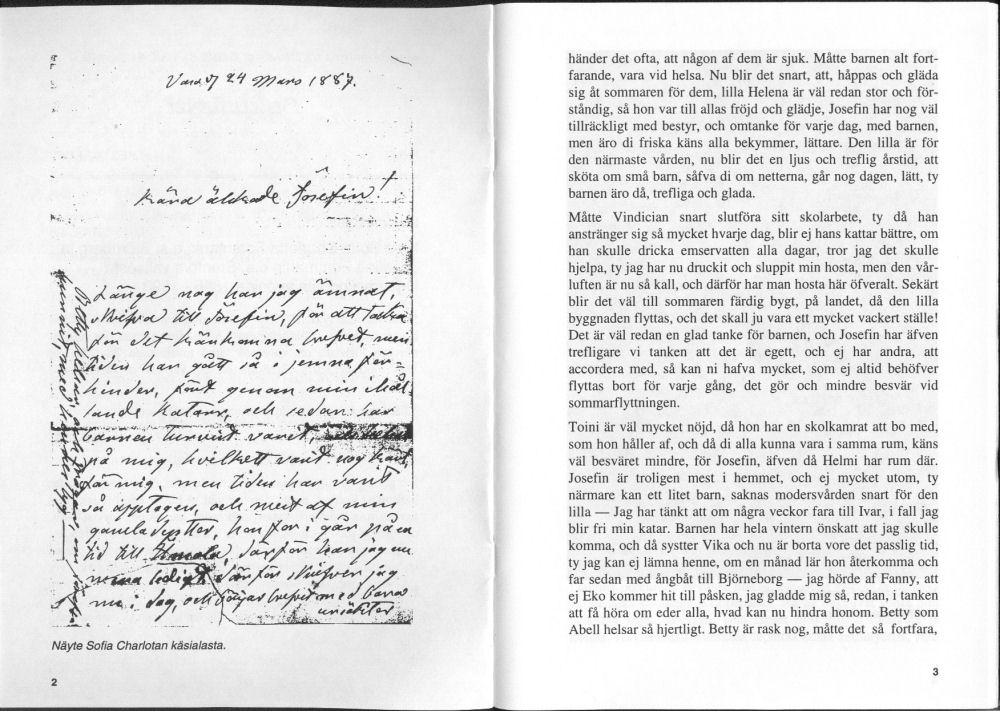 24 Mars 1887.
kära älskade Josefin!
Länge nog har jag ämnat,
skrifva till Josefin, för att tacka
för det
tiden har gått så i jemna för-
hinder, först genom min
lande Katarr, och sedan har
barnen varit,
på mig, hvilkett varit nog
för mig, men tiden har varit
så upptagen, och mest af min
gamla hon for i går på en
tid till därför har jag nu
ledigt därför skrifver jag
nu i dag, och börjar brefvet med barna
Näyte Sofia Charlotan käsialasta.
2
händer det ofta, att någon af dem är sjuk. Måtte barnen alt fort-
farande, vara vid helsa. Nu blir det snart, att, håppas och gläda
sig åt sommaren för dem, lilla Helena är väl redan stor och för-
ståndig, så hon var till allas fröjd och glädje, Josefin har nog väl
tillräckligt med bestyr, och omtanke för varje dag, med barnen,
men äro di friska käns alla bekymmer, lättare. Den lilla är för
den närmaste vården, nu blir det en ljus och treflig årstid, att
sköta om små barn, såfva di om netterna, går nog dagen, lätt, ty
barnen äro då, trefliga och glada.
Måtte Vindician snart slutföra sitt skolarbete, ty då han
anstränger sig så mycket hvarje dag, blir ej hans kattar bättre, om
han skulle dricka emservatten alla dagar, tror jag det skulle
hjelpa, ty jag har nu druckit och sluppit min hosta, men den vår-
luften är nu så kall, och därför har man hosta här öfveralt. Sekärt
blir det väl till sommaren färdig bygt, på landet, då den lilla
byggnaden flyttas, och det skall ju vara ett mycket vackert ställe!
Det är väl redan en glad tanke för barnen, och Josefin har äfven
trefligare vi tanken att det är egett, och ej har andra, att
accordera med, så kan ni hafva mycket, som ej altid behöfver
flyttas bort för varje gång, det gör och mindre besvär vid
sommarflyttningen.
Toini är väl mycket nöjd, då hon har en skolkamrat att bo med,
som hon håller af, och då di alla kunna vara i samma rum, käns
väl besväret mindre, för Josefin, äfven då Helmi har rum där.
Josefin är troligen mest i hemmet, och ej mycket utom, ty
närmare kan ett litet barn, saknas modersvården snart för den
lilla — Jag har tänkt att om några veckor fara till Ivar, i fall jag
blir fri min katar. Barnen har hela vintern önskatt att jag skulle
komma, och då systter Vika och nu är borta vore det passlig tid,
ty jag kan ej lämna henne, om en månad lär hon återkomma och
far sedan med ångbåt till Björneborg — jag hörde af Fanny, att
ej Eko kommer hit till påsken, jag gladde mig så, redan, i tanken
att få höra om eder alla, hvad kan nu hindra honom. Betty som
Abell helsar så hjertligt. Betty är rask nog, måtte det så fortfara,
3